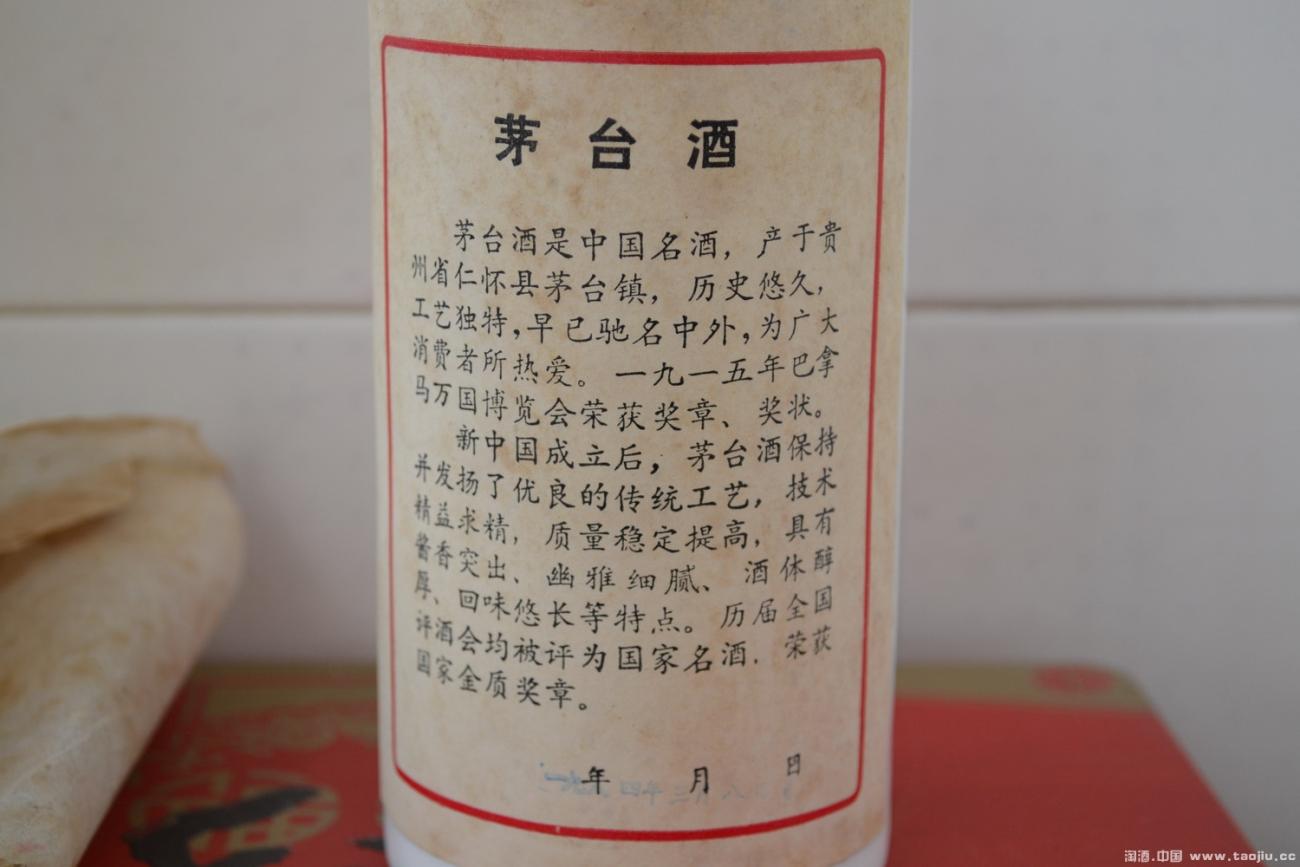 茅台酒
茅台酒是中国名酒，产于贵
州省仁怀县茅台镇，历史悠久，
工艺独特，早已驰名中外，为广大
消费者所热爱。一九一五年巴拿
马万国博览会荣获奖章、奖状。
新中国成立后，茅台酒保持
并发扬了优良的传统工艺，技术
精益求精，质量稳定提高，具有
酱香突出、幽雅细腻、酒体醇
厚、回味悠长等特点。历届全国
评酒会均被评为国家名酒．荣获
国家金质奖章。
年 月 日
淘酒.中国 www.taojiu.cc